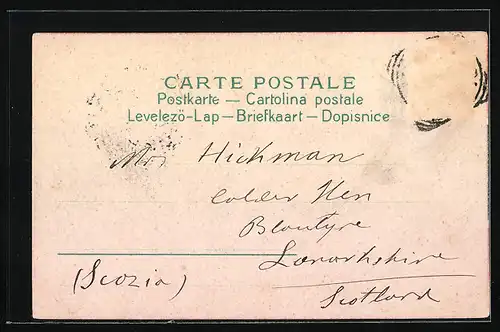 CARTE POSTALE
Postkarte — Cartolina postale
Levelező-Lap — Briefkaart — Dopisnice
Mrs Hickman
Calder Glen
Blantyre
Lanarkshire
(Scozia)
Scotland